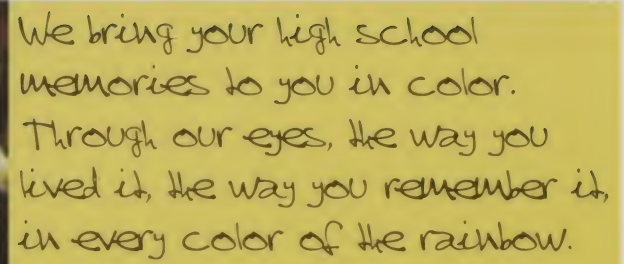 We bring your high school
memories to you in color.
Through our eyes, the way you
lived it, the way you remember it,
in every color of the rainbow.